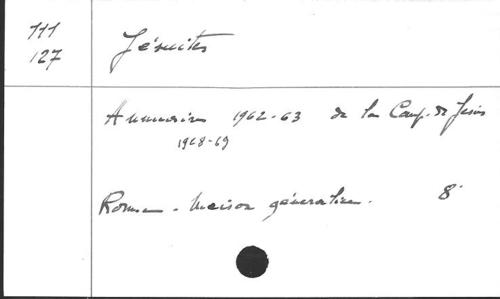 111
127
Jésuites
Annuaire 1962-63 de la Comp. de Jésus
1968-69
Rome - Maison généralice. 8°